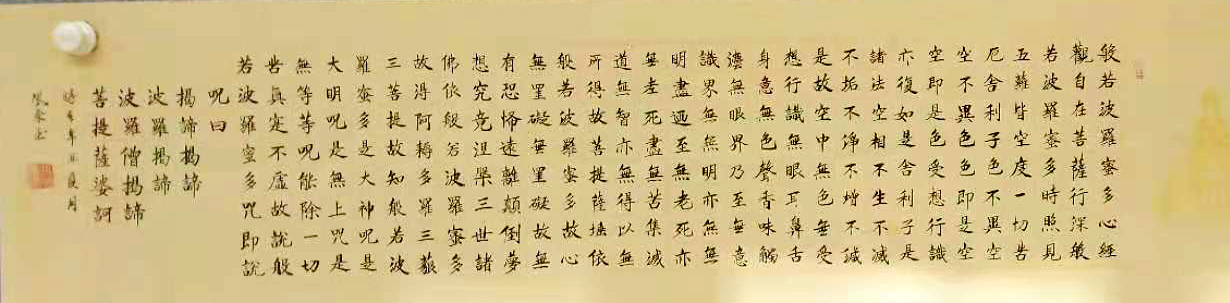 般若波羅蜜多心經
觀自在菩薩行深般
若波羅蜜多時照見
五蘊皆空度一切苦
厄舍利子色不異空
空不異色色即是空
空即是色受想行識
亦復如是舍利子是
諸法空相不生不滅
不垢不淨不增不減
是故空中無色無受
想行識無眼耳鼻舌
身意無色聲香味觸
灋無眼界乃至無意
識界無無明亦無無
明盡迺至無老死亦
無老死盡無苦集滅
道無智亦無得以無
所得故菩提薩埵依
般若波羅蜜多故心
無罣礙無罣礙故無
有恐怖遠離顛倒夢
想究竟涅槃三世諸
佛依般若波羅蜜多
故得阿耨多羅三藐
三菩提故知般若波
羅蜜多是大神呪是
大明呪是無上咒是
無等等呪能除一切
苦真寔不虛故說般
若波羅蜜多咒即說
呪曰
揭諦揭諦
波羅揭諦
波羅僧揭諦
菩提薩婆訶